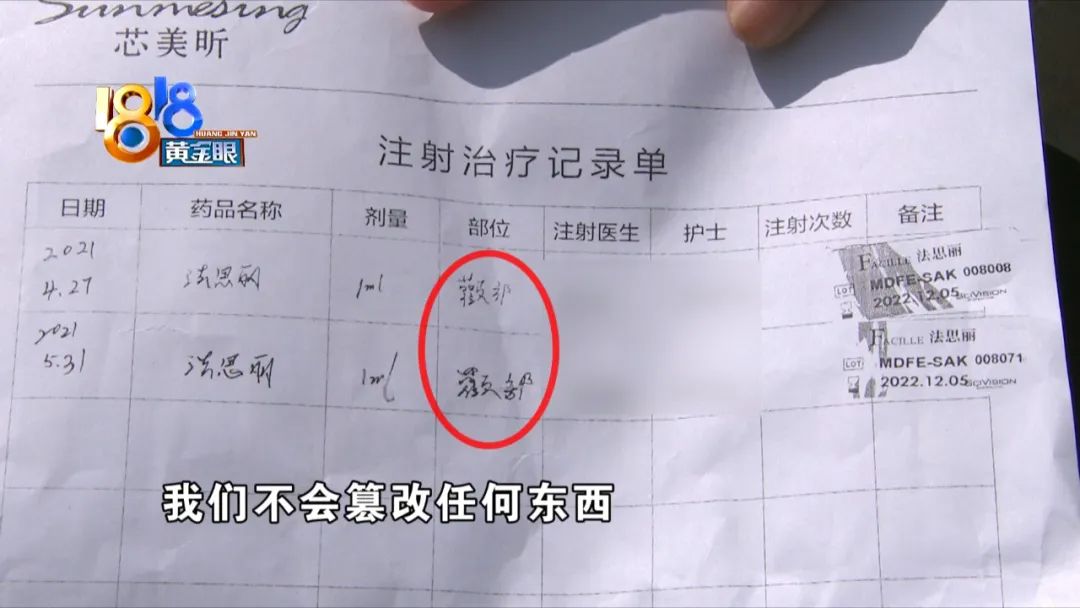 Sunmesing
芯美昕
1818
HUANG JIN YAN
黄金眼
注射治疗记录单
日期 药品名称 剂量 部位 注射医生 护士 注射次数 备注
2021
4.27 法思丽 1ml 颧部
FACILLE 法思丽
MDFE-SAK 008008
LOT 2022.12.05 SCIVISION
2021
5.31 法思丽 1ml 颧部
FACILLE 法思丽
LOT MDFE-SAK 008071
2022.12.05 SCIVISION
我们不会篡改任何东西